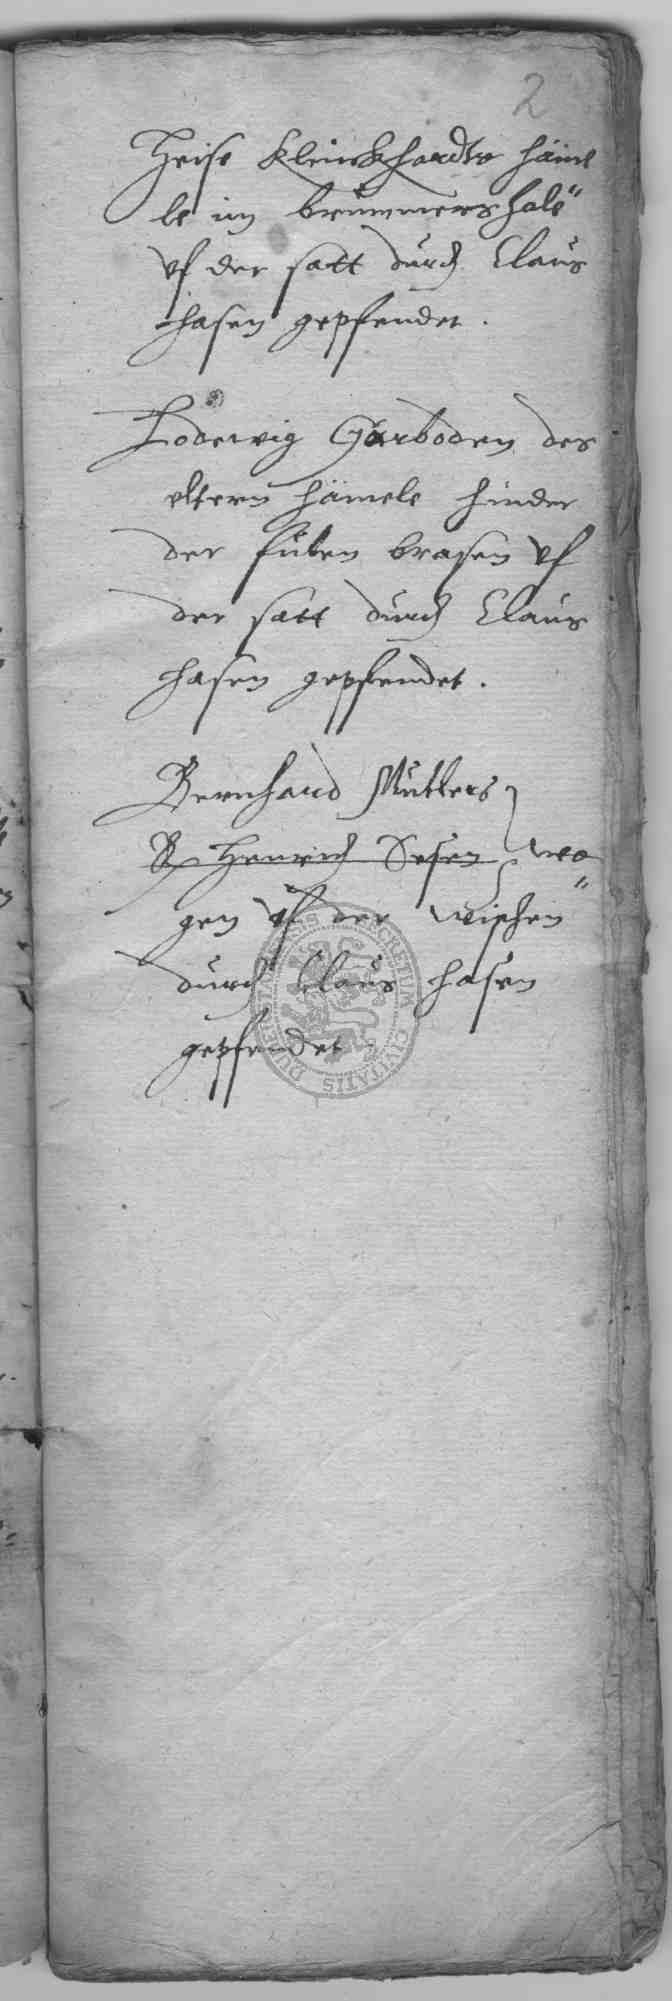 2
Heise Kleinschardts häme
le im brummershole
uf der satt durch Claus
hasen gepfendet.
Lodewig Garboden des
eltern hämele hinder
der fulen brasen uf
der satt durch Claus
hasen gepfendet.
Bernhard Mutters
& Henrich Sesen wa
gen uf der wischen
durch Claus hasen
gepfendet
SECRETUM CIVITATIS